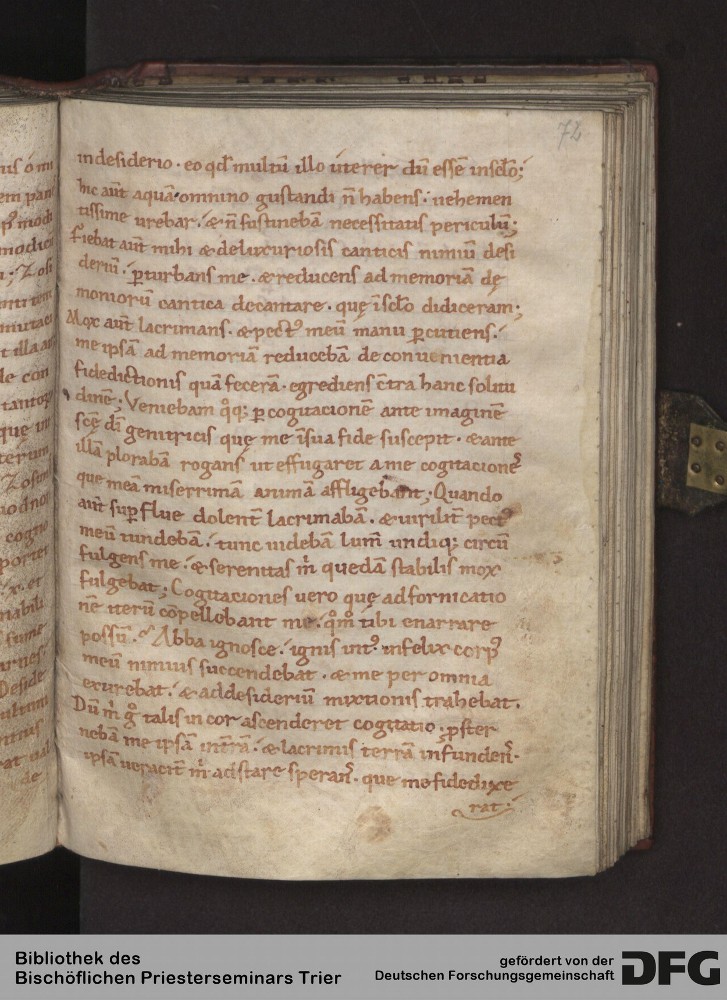 72
in desiderio · eo qđ multū illo uterer dū essē insc̄lo;
hic aūt aquā omnino gustandi n̄ habens · uehemen
tissime urebar · & n̄ sustinebā necessitatis periculū;
Fiebat aūt mihi & de luxuriosis canticis nimiū desi
deriū · ꝑturbans me · & reducens ad memoriā dę
moniorū cantica decantare · quę īsc̄lo didiceram;
Mox aūt lacrimans · & pect᷒ meū manu ꝑcutiens ·
me ipsā ad memoriā reducebā de conuenientia
fidedictionis quā fecerā · egrediens c̄tra hanc solitu
dinē; Veniebam q̊q; ꝑ cogitacionē ante imaginē
sc̄ę dī genitricis quę me īsua fide suscepit · & ante
illā plorabā rogans ut effugaret a me cogitacionē
que meā miserrimā animā affligebant; Quando
aūt suꝑflue dolent̄ lacrimabā · & uirilit̄ pect᷒
meū tundebā · tunc uidebā lum̄ undiq; circū
fulgens me · & serenitas m̊ quedā stabilis mox
fulgebat; Cogitaciones uero quę ad fornicatio
nē iterū cōpellebant me · q̊m̊ tibi enarrare
possū · Abba ignosce · ignis int᷒ infelix corp᷒
meū nimius succendebat · & me per omnia
exurebat · & ad desideriū mixtionis trahebat ·
Dū m̊ g̊ talis in cor ascenderet cogitatio · ꝓster
nebā me ipsā in t̄rā · & lacrimis terrā infundens ·
ipsā ueracit̄ m̊ adstare sperans · que me fidedixe
rat ·
us ó ni
modi
modic
Zosi
mutac
t illa a
le con
tantop
que in
Zosim
cogno
portet
x · et
nabili
sume
Deside
ultum
de
Bibliothek des
Bischöflichen Priesterseminars Trier
gefördert von der
Deutschen Forschungsgemeinschaft
DFG